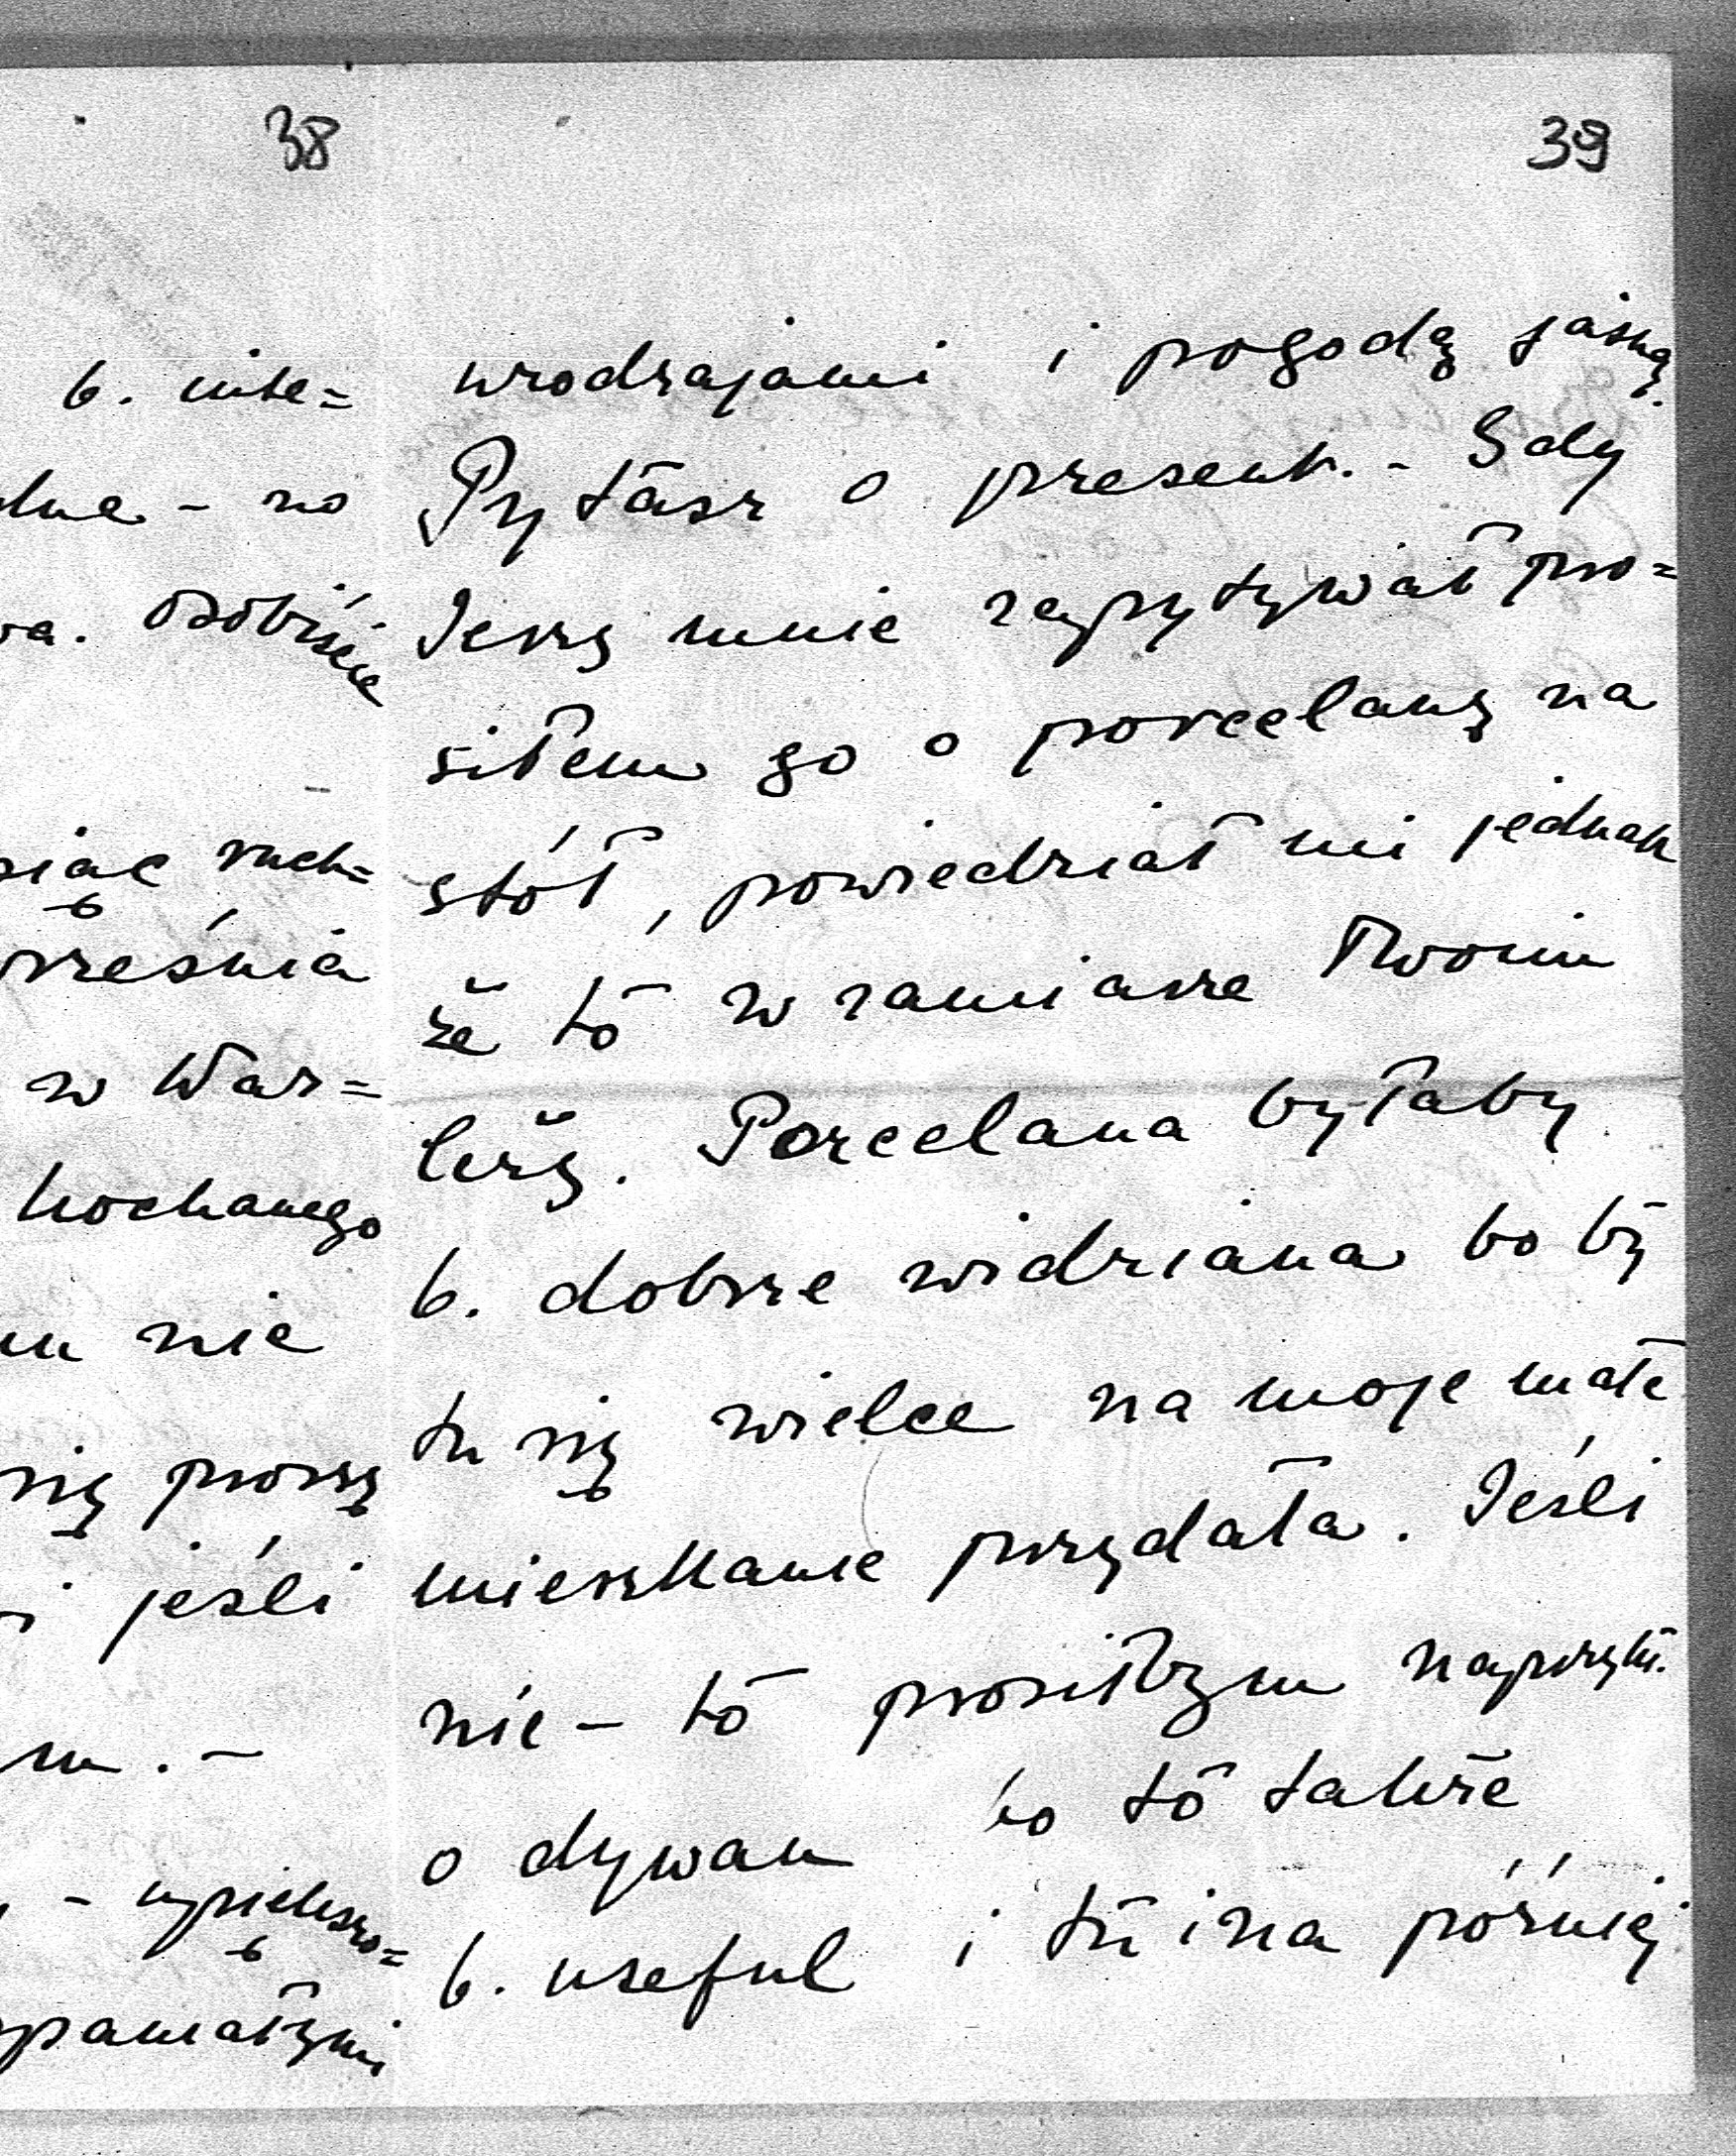 38
b. inte=
- no
osobiście
ruch=
września
w War=
kochanego
nie
się proszę
i jeśli
39
urodzajami i pogodą jasną.
Pytasz o present. - Gdy
Jerzy mnie zapytywał pro=
siłem go o porcelanę na
stół, powiedział mi jednak
że to w zamiarze Twoim
leży. Porcelana byłaby
b. dobrze widziana bo by
tu się wielce na moje małe
mieszkanie przydała. Jeśli
nie - to prosiłbym naprzykł.
o dywan bo to także
b. useful i tu i na później